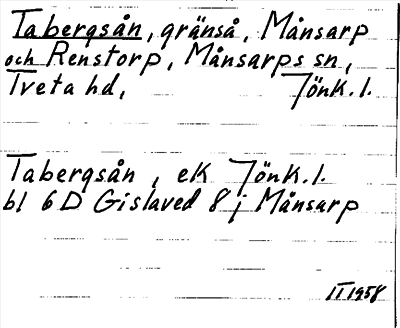 Tabergsån, gränså, Månsarp
och Renstorp, Månsarps sn,
Tveta hd, Jönk. l.
Tabergsån, ek Jönk. l.
bl 6D Gislaved 8 j Månsarp
II 1958